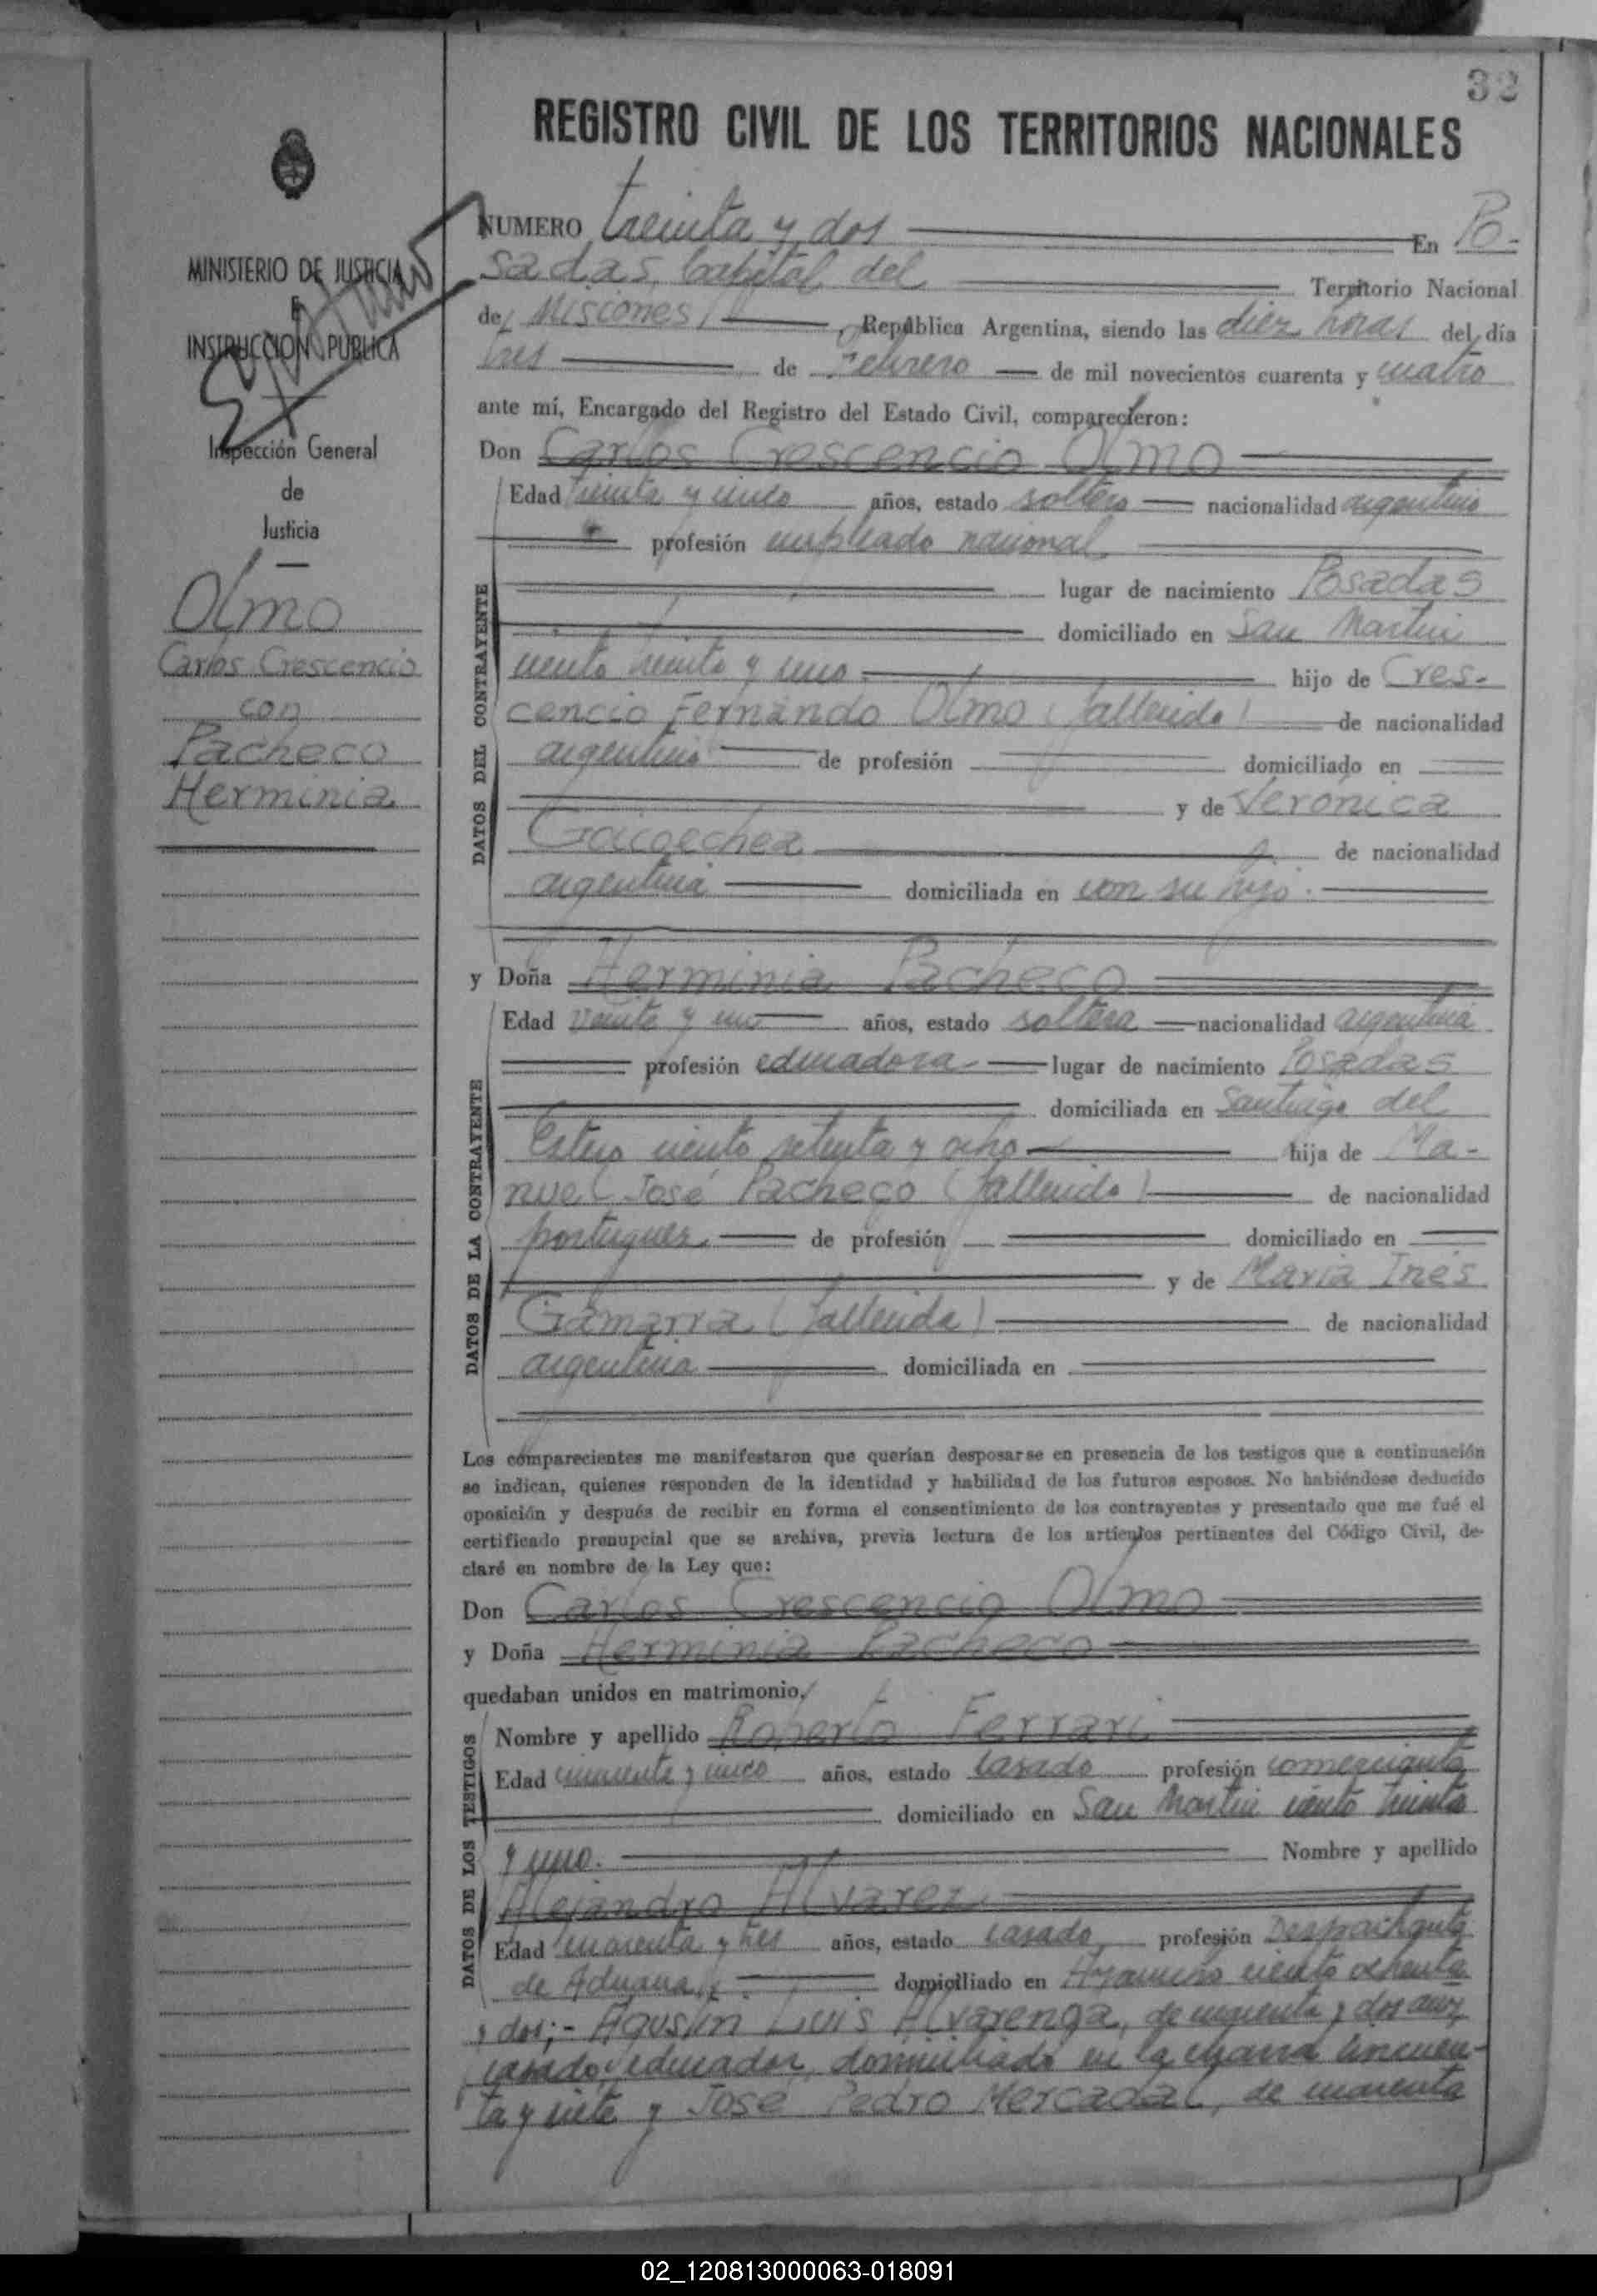 32
REGISTRO CIVIL DE LOS TERRITORIOS NACIONALES
MINISTERIO DE JUSTICIA
E
INSTRUCCION PUBLICA
Inspección General
de
Justicia
Olmo
Carlos Crescencio
con
Pacheco
Herminia
NUMERO treinta y dos En Po-
sadas, Capital del Territorio Nacional
de Misiones, República Argentina, siendo las diez horas del día
tres de Febrero de mil novecientos cuarenta y cuatro
ante mí, Encargado del Registro del Estado Civil, comparecieron:
Don Carlos Crescencio Olmo
Edad treinta y cinco años, estado soltero nacionalidad argentino
profesión empleado nacional
lugar de nacimiento Posadas
domiciliado en San Martin
ciento treinta y uno hijo de Cres-
cencio Fernando Olmo (fallecido) de nacionalidad
argentino de profesión domiciliado en
y de Verónica
Goicoechea de nacionalidad
argentina domiciliada en con su hijo.
DATOS DEL CONTRAYENTE
y Doña Herminia Pacheco
Edad veinte y uno años, estado soltera nacionalidad argentina
profesión educadora lugar de nacimiento Posadas
domiciliada en Santiago del
Estero ciento setenta y ocho hija de Ma-
nuel José Pacheco (fallecido) de nacionalidad
portugues de profesión domiciliado en
y de María Inés
Gamarra (fallecida) de nacionalidad
argentina domiciliada en
DATOS DE LA CONTRAYENTE
Los comparecientes me manifestaron que querían desposarse en presencia de los testigos que a continuación
se indican, quienes responden de la identidad y habilidad de los futuros esposos. No habiéndose deducido
oposición y después de recibir en forma el consentimiento de los contrayentes y presentado que me fué el
certificado prenupcial que se archiva, previa lectura de los artículos pertinentes del Código Civil, de-
claré en nombre de la Ley que:
Don Carlos Crescencio Olmo
y Doña Herminia Pacheco
quedaban unidos en matrimonio.
Nombre y apellido Roberto Ferrari
Edad cincuenta y cinco años, estado casado profesión comerciante
domiciliado en San Martin ciento treinta
y uno. Nombre y apellido
Alejandro Alvarez
Edad cuarenta y tres años, estado casado profesión Despachante
de Aduana domiciliado en Ayacucho ciento ochenta
y dos;- Agustín Luis Alvarenga, de cuarenta y dos años,
casado, educador, domiciliado en la chacra cincuen-
ta y siete y José Pedro Mercadal, de cuarenta
DATOS DE LOS TESTIGOS
02_120813000063-018091